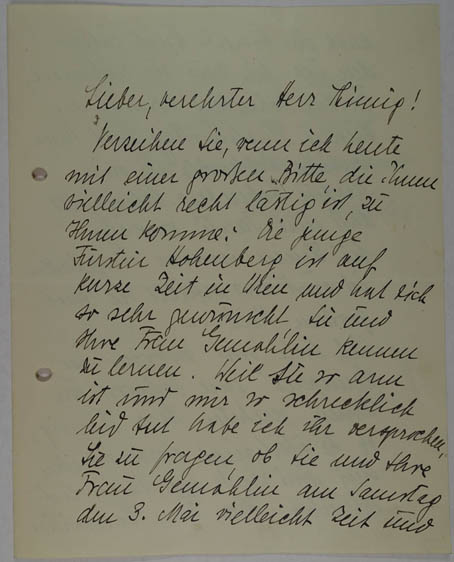 Lieber, verehrter Herr König!
Verzeihen Sie, wenn ich heute
mit einer großen Bitte, die Ihnen
vielleicht recht lästig ist, zu
Ihnen komme: Die junge
Fürstin Hohenberg ist auf
kurze Zeit in Wien und hat sich
so sehr gewünscht, Sie und
Ihre Frau Gemahlin kennen
zu lernen. Weil Sie so arm
ist und mir so schrecklich
leid tut habe ich ihr versprochen,
Sie zu fragen, ob Sie und Ihre
Frau Gemahlin am Samstag
den 3. Mai vielleicht Zeit und